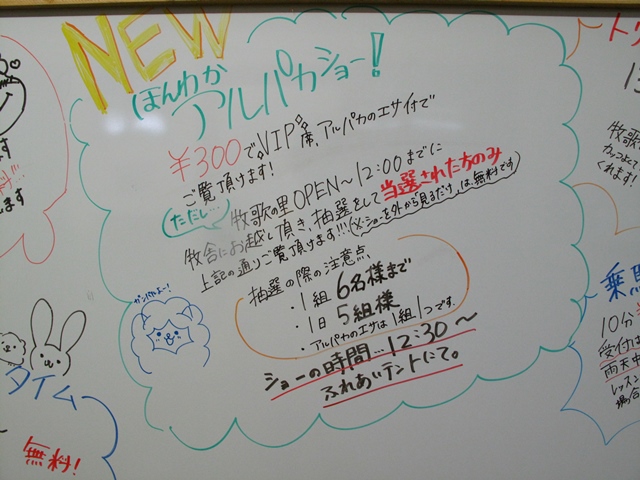 NEW
ほんわか
アルパカショー!
¥300でVIP席、アルパカのエサ付で
ご覧頂けます!
ただし…
牧歌の里OPEN〜12:00までに
牧舎にお越し頂き、抽選をして当選された方のみ
上記の通りご覧頂けます!!!(※ショーを外から見るだけ、は、無料です)
抽選の際の注意点
・1組 6名様まで
・1日 5組様
・アルパカのエサは1組1つです。
ショーの時間…12:30〜
ふれあいテントにて。
ガンバルよー!
タイム
無料!
ます
ト
13
牧歌
カッコよく
くれます!
乗馬
10分
受付は
雨天中
レッスン
場合